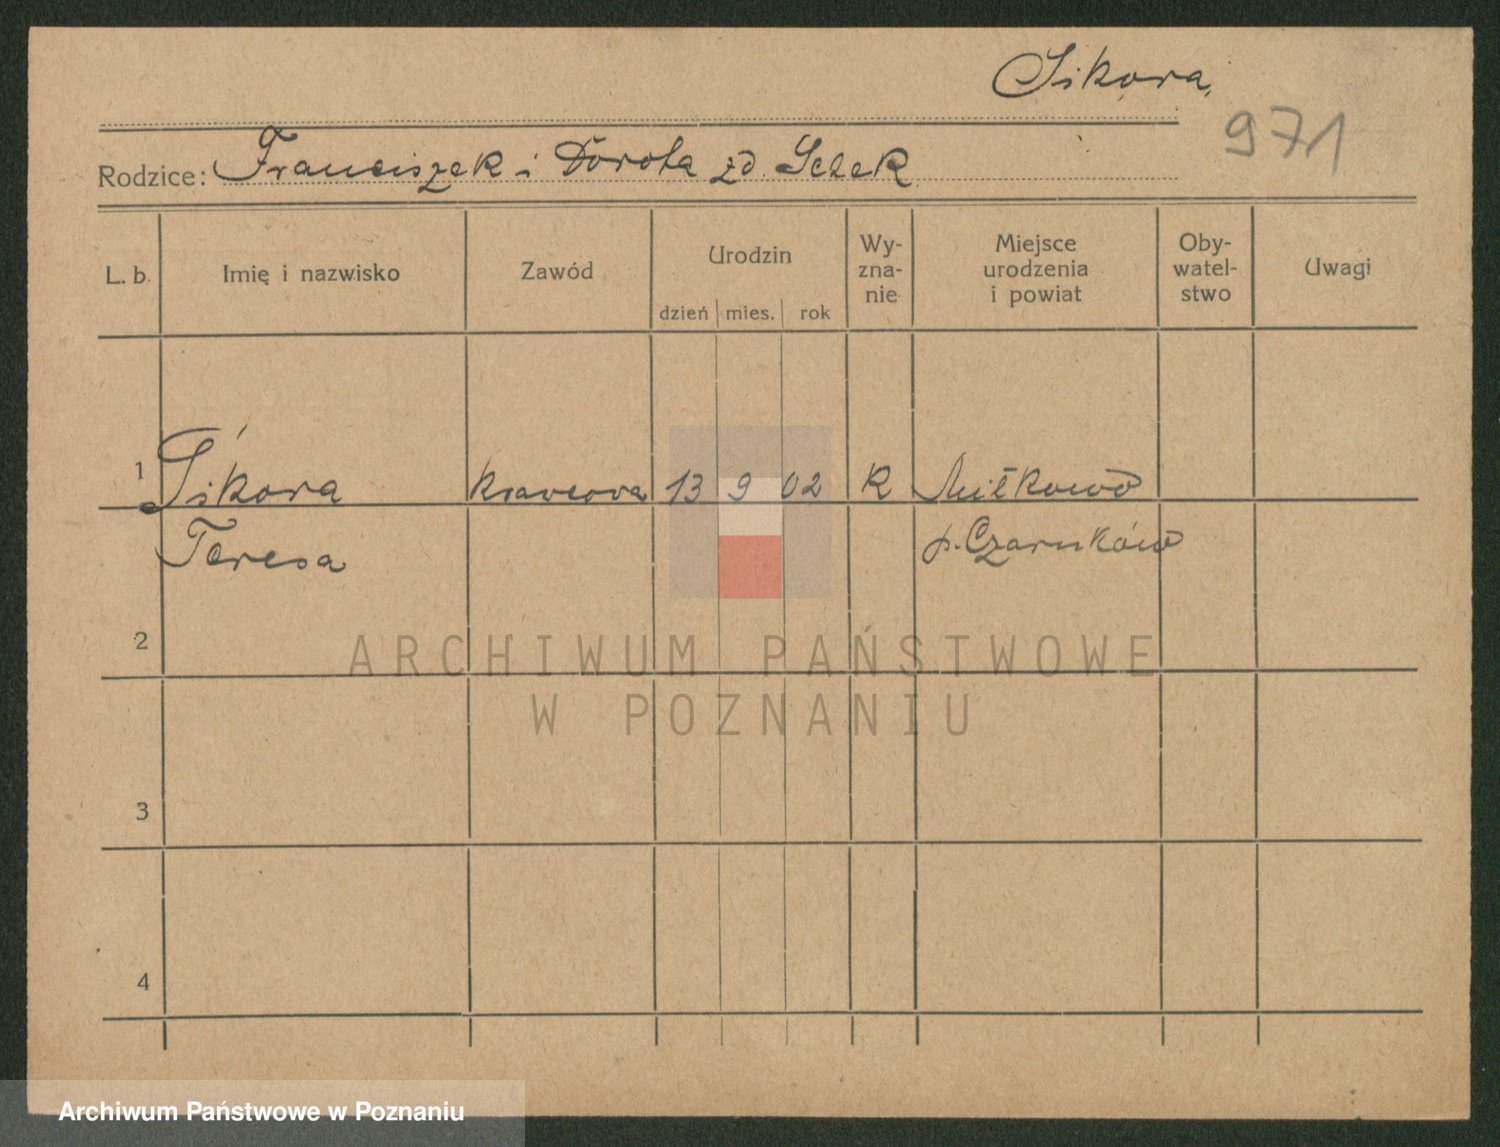 Sikora.
971
Rodzice: Franciszek i Dorota zd. Selek
L. b. Imię i nazwisko Zawód Urodzin Wy-zna-nie Miejsce urodzenia i powiat Oby-watel-stwo Uwagi
dzień mies. rok
1 Sikora krawcowa 13 9 02 R Miłkowo
Teresa p. Czarnków
2
ARCHIWUM PAŃSTWOWE
W POZNANIU
3
4
Archiwum Państwowe w Poznaniu